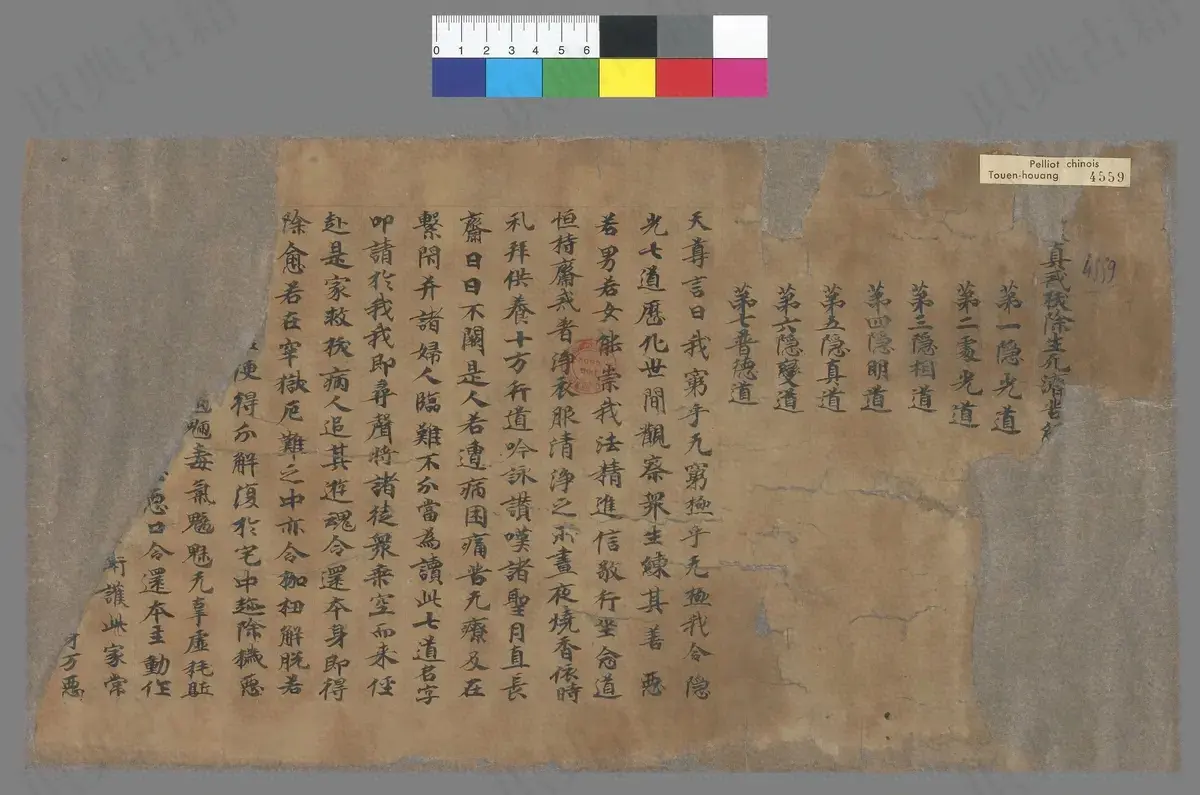 Pelliot chinois
Touen-houang 4559
4559
0 1 2 3 4 5 6
真戒拔除生死濟苦經
第一隐光道
第二霙光道
第三隐相道
第四隐明道
第五隐真道
第六隐變道
第七普德道
天尊言曰我窮乎无窮極乎无極我令隐
光七道歷化世間觀察衆生練其善惡
若男若女能崇我法精進信敬行坐念道
恒持齋戒者淨衣服清淨之所晝夜燒香依時
礼拜供養十方行道吟詠讃嘆諸聖月直長
齋日日不闕是人若遭病困痛苦无療及在
繫閇并諸婦人臨難不分當為讀此七道名字
叩請於我我即尋聲將諸徒衆乘空而来侄
赴是家救拔病人追其遊魂令還本身即得
除愈若在窂獄厄難之中亦令枷杻解脱若
便得分解復於宅中驅除穢惡
魍毒氣魑魅无辜虛耗駈
惡口令還本主動作
衛護此家常
才万惡